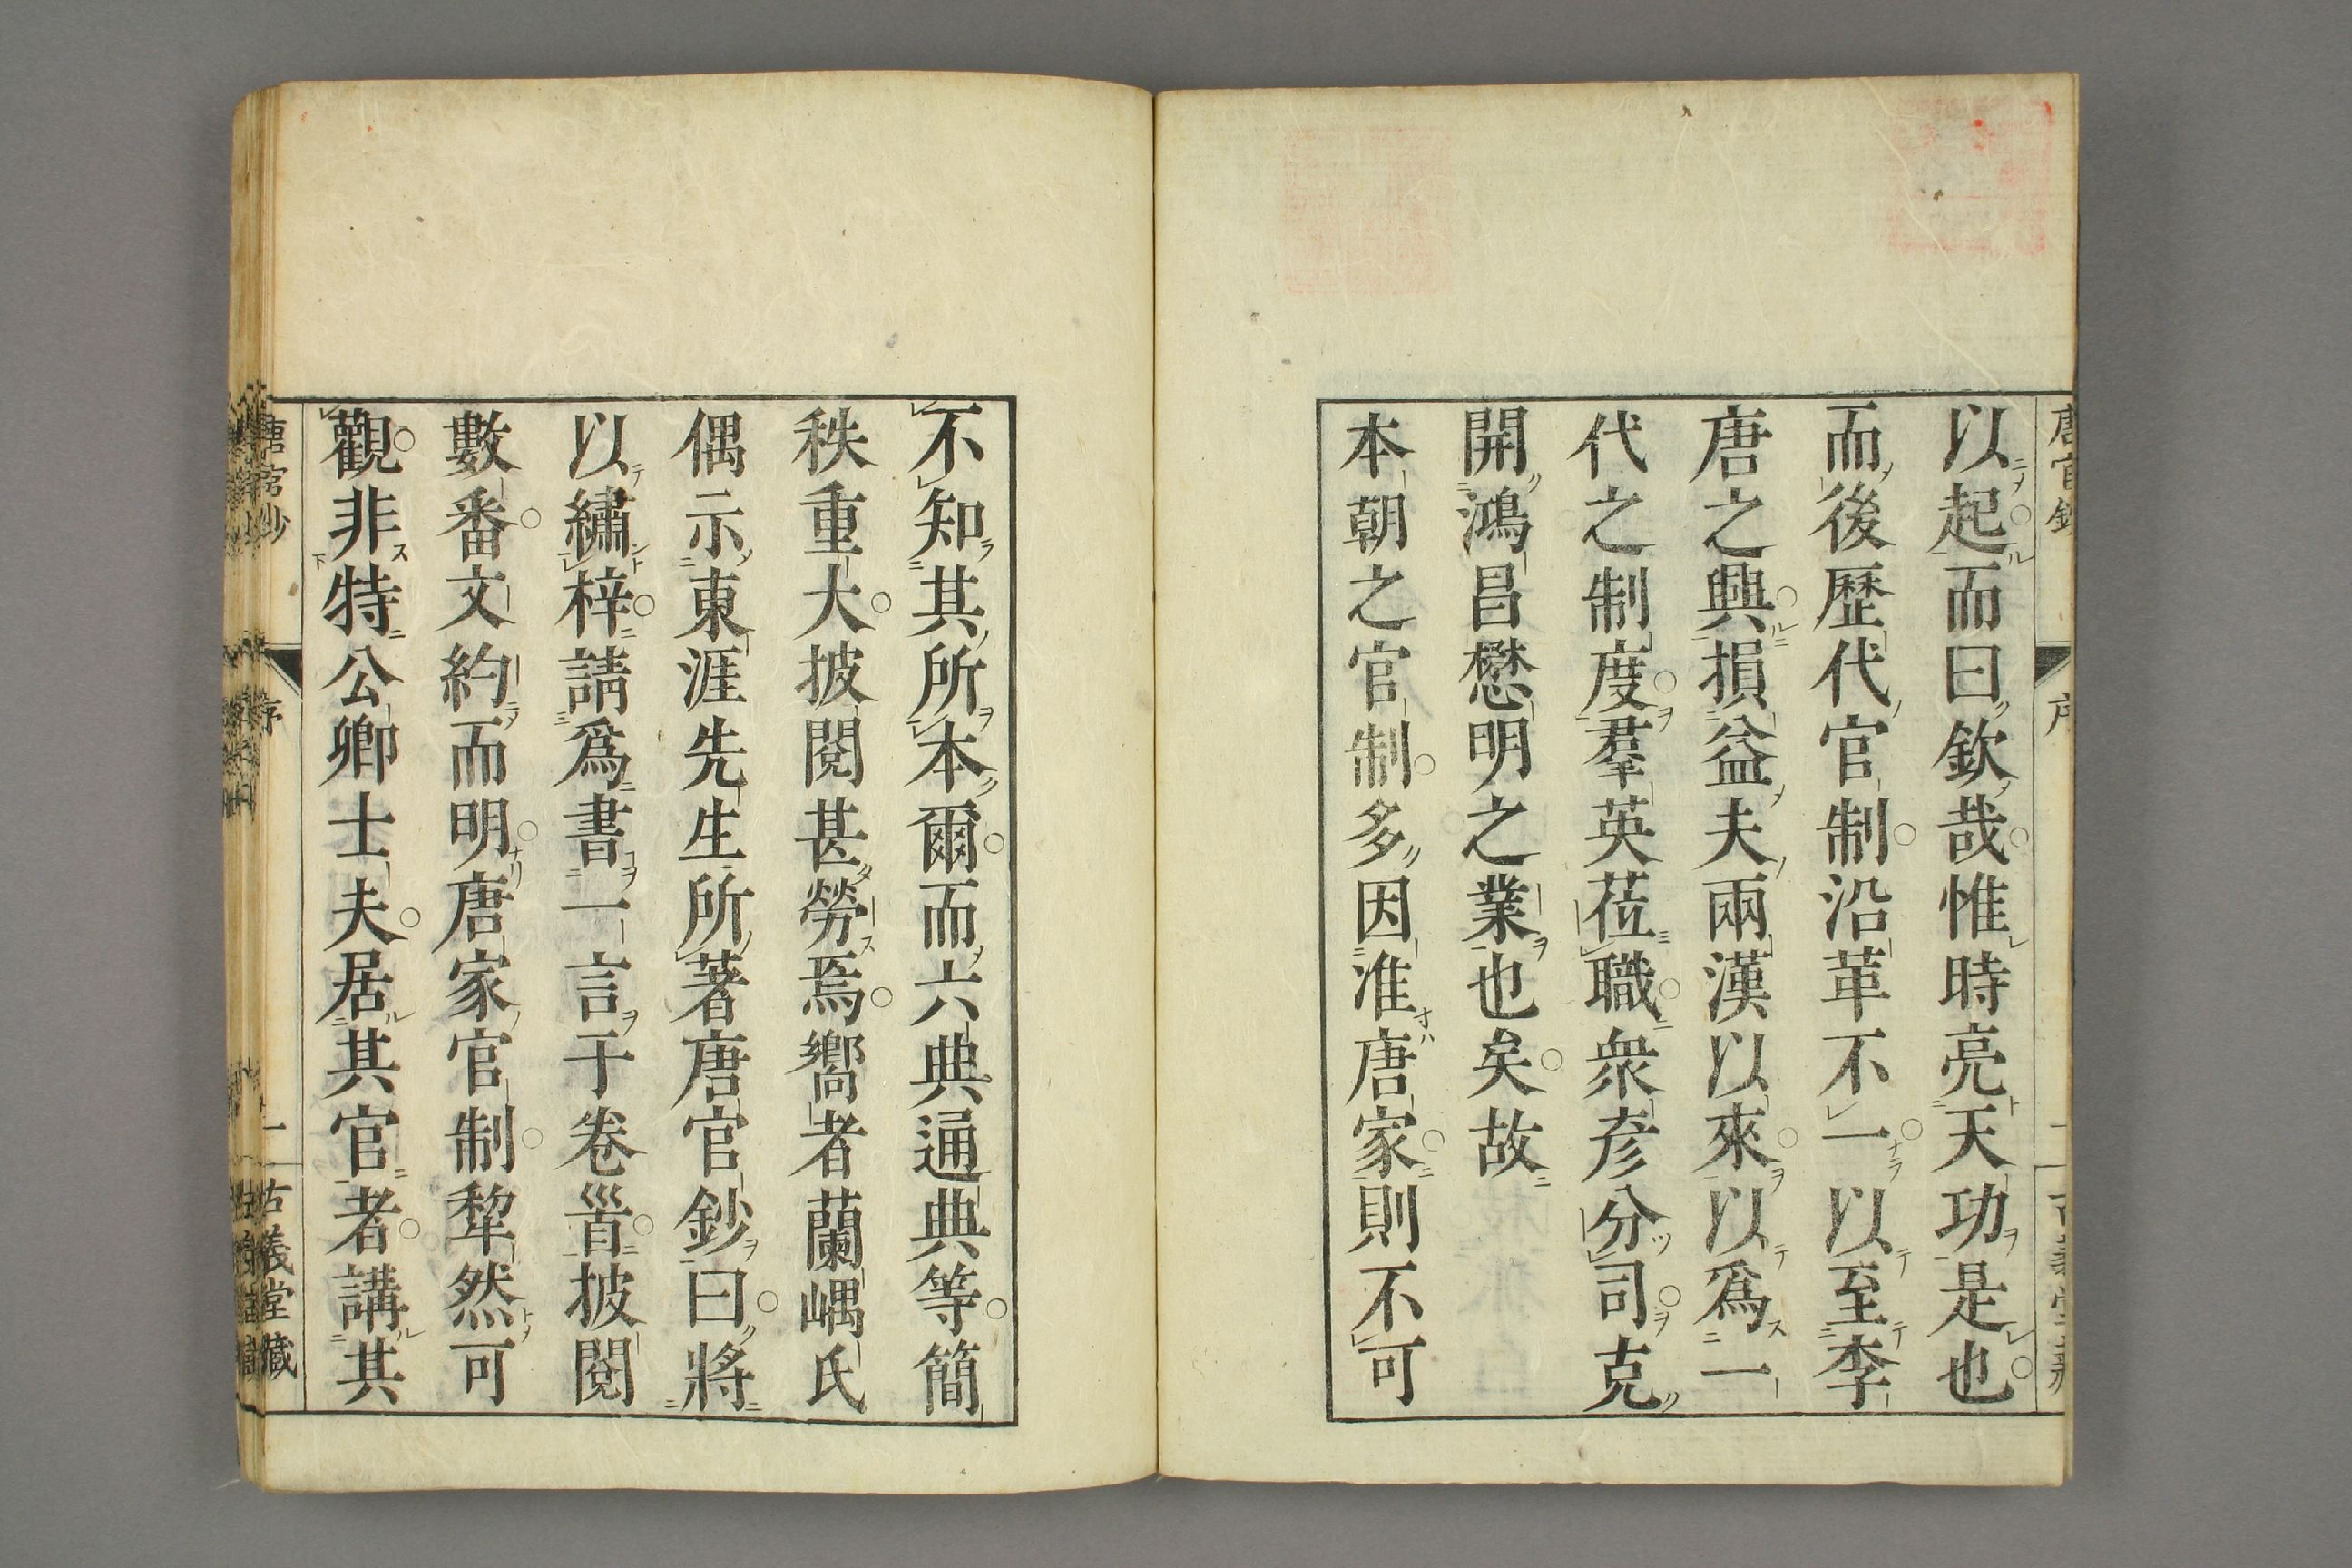 以起而曰欽哉惟時亮天功是也
而後歷代官制沿革不一以至李
唐之興損益夫兩漢以來以爲一
代之制度羣英莅職衆彥分司克
開鴻昌懋明之業也矣故
本朝之官制多因准唐家則不可
不知其所本爾而六典通典等簡
秩重大披閱甚勞焉嚮者蘭嵎氏
偶示東涯先生所著唐官鈔曰將
以繡梓請爲書一言于卷首披閱
數番文約而明唐家官制犂然可
觀非特公卿士夫居其官者講其
唐官鈔 序 一 古義堂藏